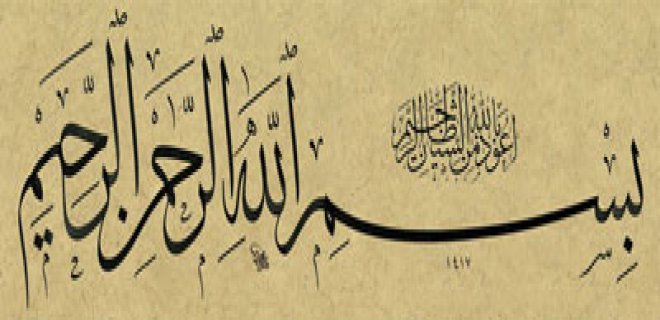 أعوذ بالله من الشيطان الرجيم
بِسْمِ اللَّهِ الرَّحْمٰنِ الرَّحِيمِ
١٤١٧